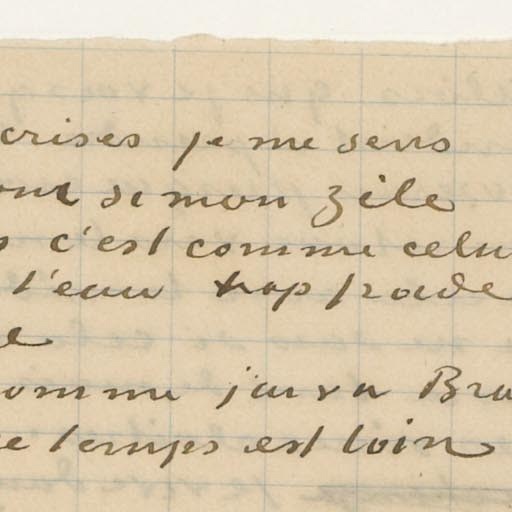 crises je me sens
donc si mon zèle
c'est comme celui
l'eau trop froide
comme j'ai vu Bra
le temps est loin